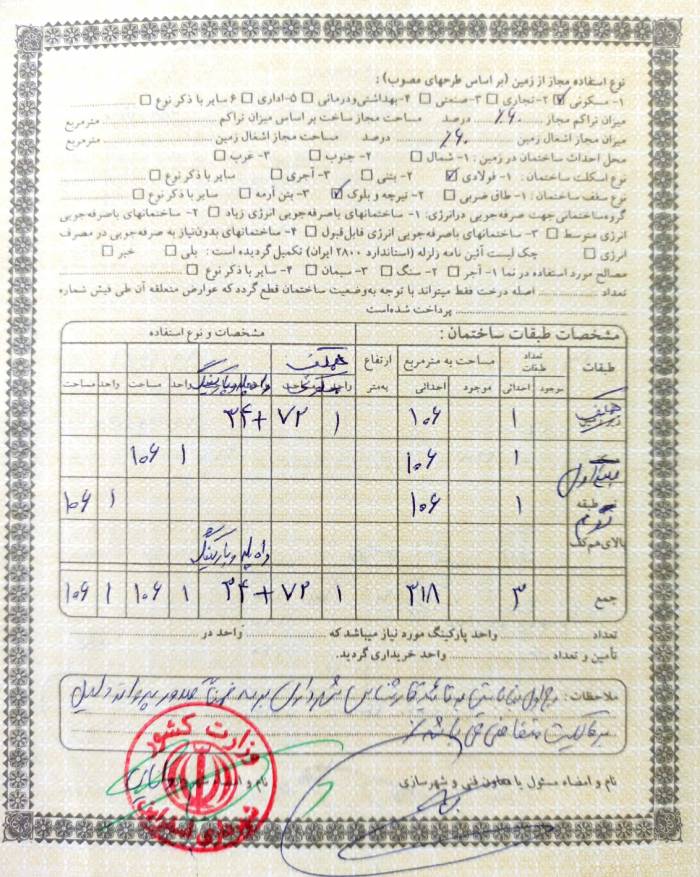 نوع استفاده مجاز از زمین (بر اساس طرحهای مصوب) :
۱- مسکونی ☑ ۲- تجاری ☐ ۳- صنعتی ☐ ۴- بهداشتی ودرمانی ☐ ۵- اداری ☐ ۶ سایر با ذکر نوع ☐
میزان تراکم مجاز ٪۶۰ درصد مساحت مجاز ساخت بر اساس میزان تراکم مترمربع
میزان مجاز اشغال زمین ٪۶۰ درصد مساحت مجاز اشغال زمین مترمربع
محل احداث ساختمان در زمین : ۱- شمال ☐ ۲- جنوب ☐ ۳- غرب ☐
نوع اسکلت ساختمان : ۱- فولادی ☑ ۲- بتنی ☐ ۳- آجری ☐ سایر با ذکر نوع ☐
نوع سقف ساختمان : ۱- طاق ضربی ☐ ۲- تیرچه و بلوک ☑ ۳- بتن آرمه ☐ سایر با ذکر نوع ☐
گروه ساختمانی جهت صرفه جویی درانرژی: ۱- ساختمانهای باصرفه جویی انرژی زیاد ☐ ۲- ساختمانهای باصرفه جویی
انرژی متوسط ☐ ۳- ساختمانهای باصرفه جویی انرژی قابل قبول ☐ ۴- ساختمانهای بدون نیاز به صرفه جویی در مصرف
انرژی ☐ چک لیست آئین نامه زلزله (استاندارد ۲۸۰۰ ایران) تکمیل گردیده است : بلی ☐ خیر ☐
مصالح مورد استفاده در نما ۱- آجر ☐ ۲- سنگ ☐ ۳- سیمان ☐ ۴- سایر با ذکر نوع ☐
تعداد اصله درخت فقط میتواند با توجه به وضعیت ساختمان قطع گردد که عوارض متعلقه آن طی فیش شماره
پرداخت شده است
مشخصات طبقات ساختمان : مشخصات و نوع استفاده
طبقات تعداد طبقات مساحت به مترمربع ارتفاع همکف
موجود احداثی موجود احداثی به متر واحد راه پله و پارکینگ واحد مساحت واحد مساحت
همکف ۱ ۱۰۶ ۱ ۷۲ +۳۴
اول ۱ ۱۰۶ ۱ ۱۰۶
طبقه دوم ۱ ۱۰۶ ۱ ۱۰۶
بالای همکف راه پله و پارکینگ
جمع ۳ ۳۱۸ ۱ ۷۲ +۳۴ ۱ ۱۰۶ ۱ ۱۰۶
تعداد واحد پارکینگ مورد نیاز میباشد که واحد در
تأمین و تعداد واحد خریداری گردید.
ملاحظات :
نام و امضاء مسئول یا معاون فنی و شهرسازی
نام و امضاء
وزارت کشور